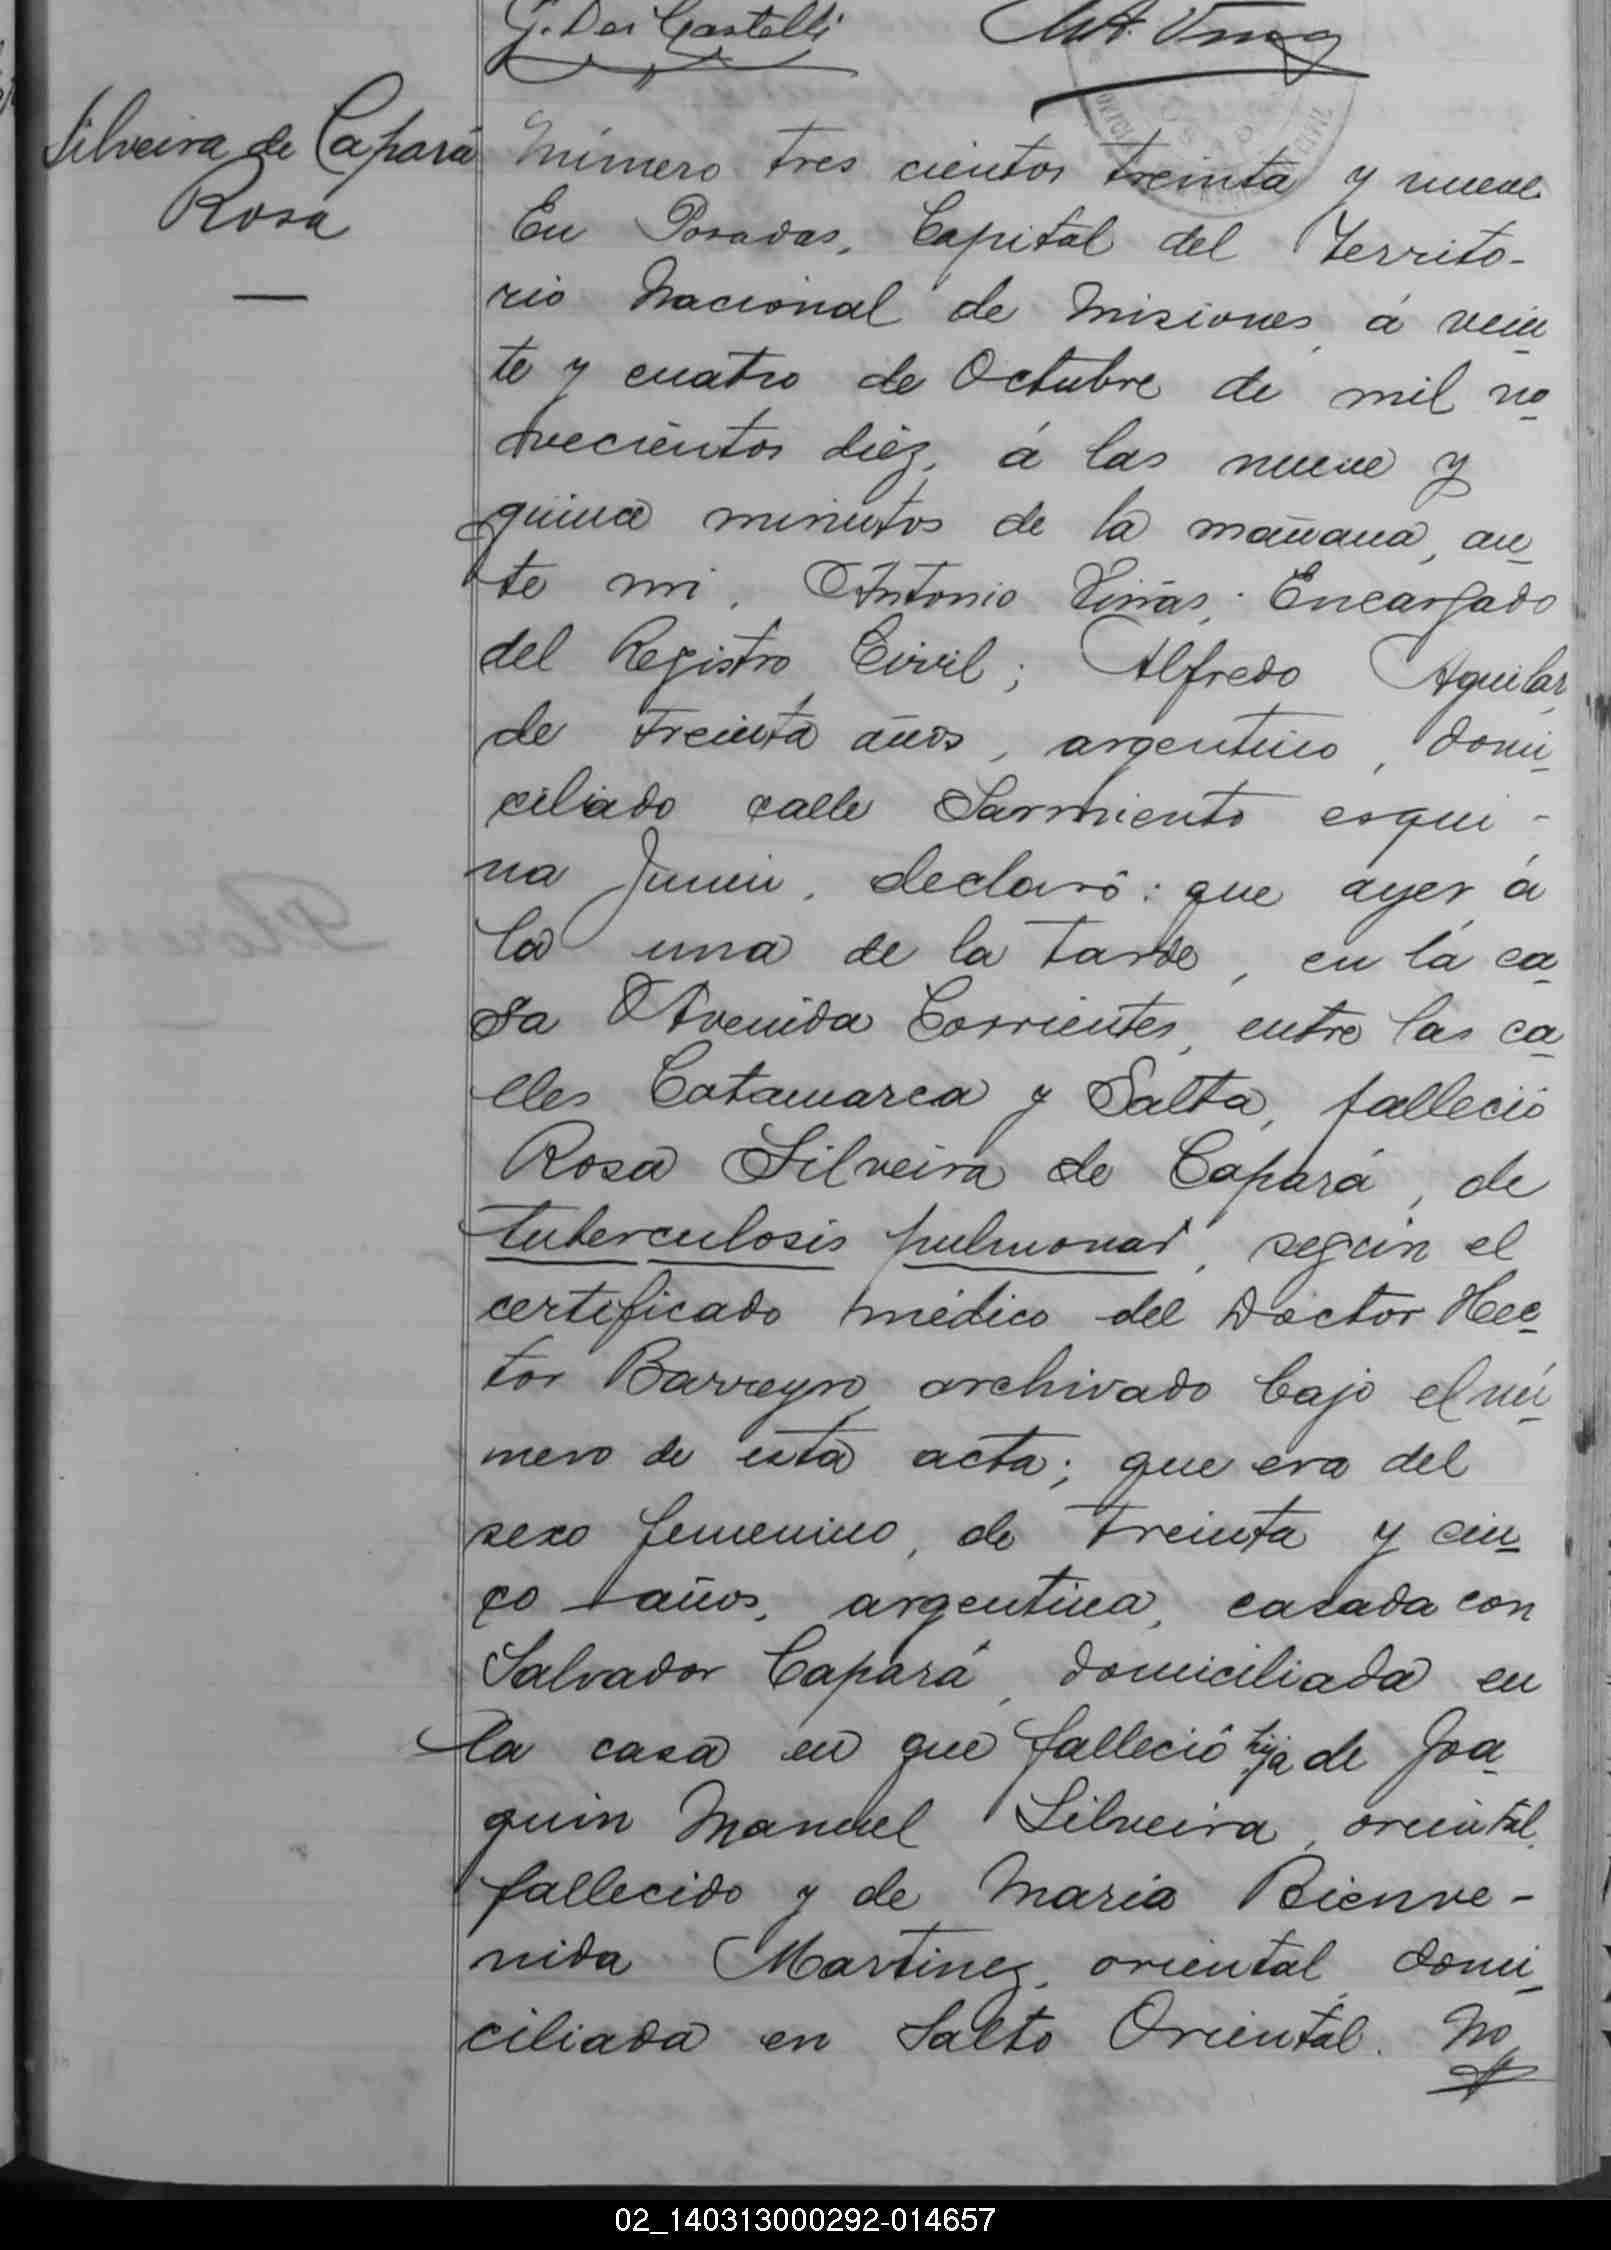 G. Dei Castelli
Silveira de Capará
Rosa
Número tres cientos treinta y nueve
En Posadas, Capital del Territo-
rio Nacional de Misiones, á vein
te y cuatro de Octubre de mil no
vecientos diéz, á las nueve y
quince minutos de la mañana, an
te mi, Antonio Viñas, Encargado
del Registro Civil; Alfredo Aguilar,
de treinta años, argentino, domi
ciliado calle Sarmiento esqui-
na Junin, declaró: que ayer á
la una de la tarde, en la ca
sa Avenida Corrientes, entre las ca
lles Catamarca y Salta, falleció
Rosa Silveira de Capará, de
tuberculosis pulmonar, según el
certificado médico del Doctor Hec
tor Barreyro archivado bajo el nú
mero de esta acta; que era del
sexo femenino, de treinta y cin
co años, argentina, casada con
Salvador Capará, domiciliada en
la casa en que falleció hija de Joa
quin Manuel Silveira, oriental,
fallecido y de Maria Bienve-
nida Martinez, oriental, domi
ciliada en Salto Oriental. No
02_140313000292-014657